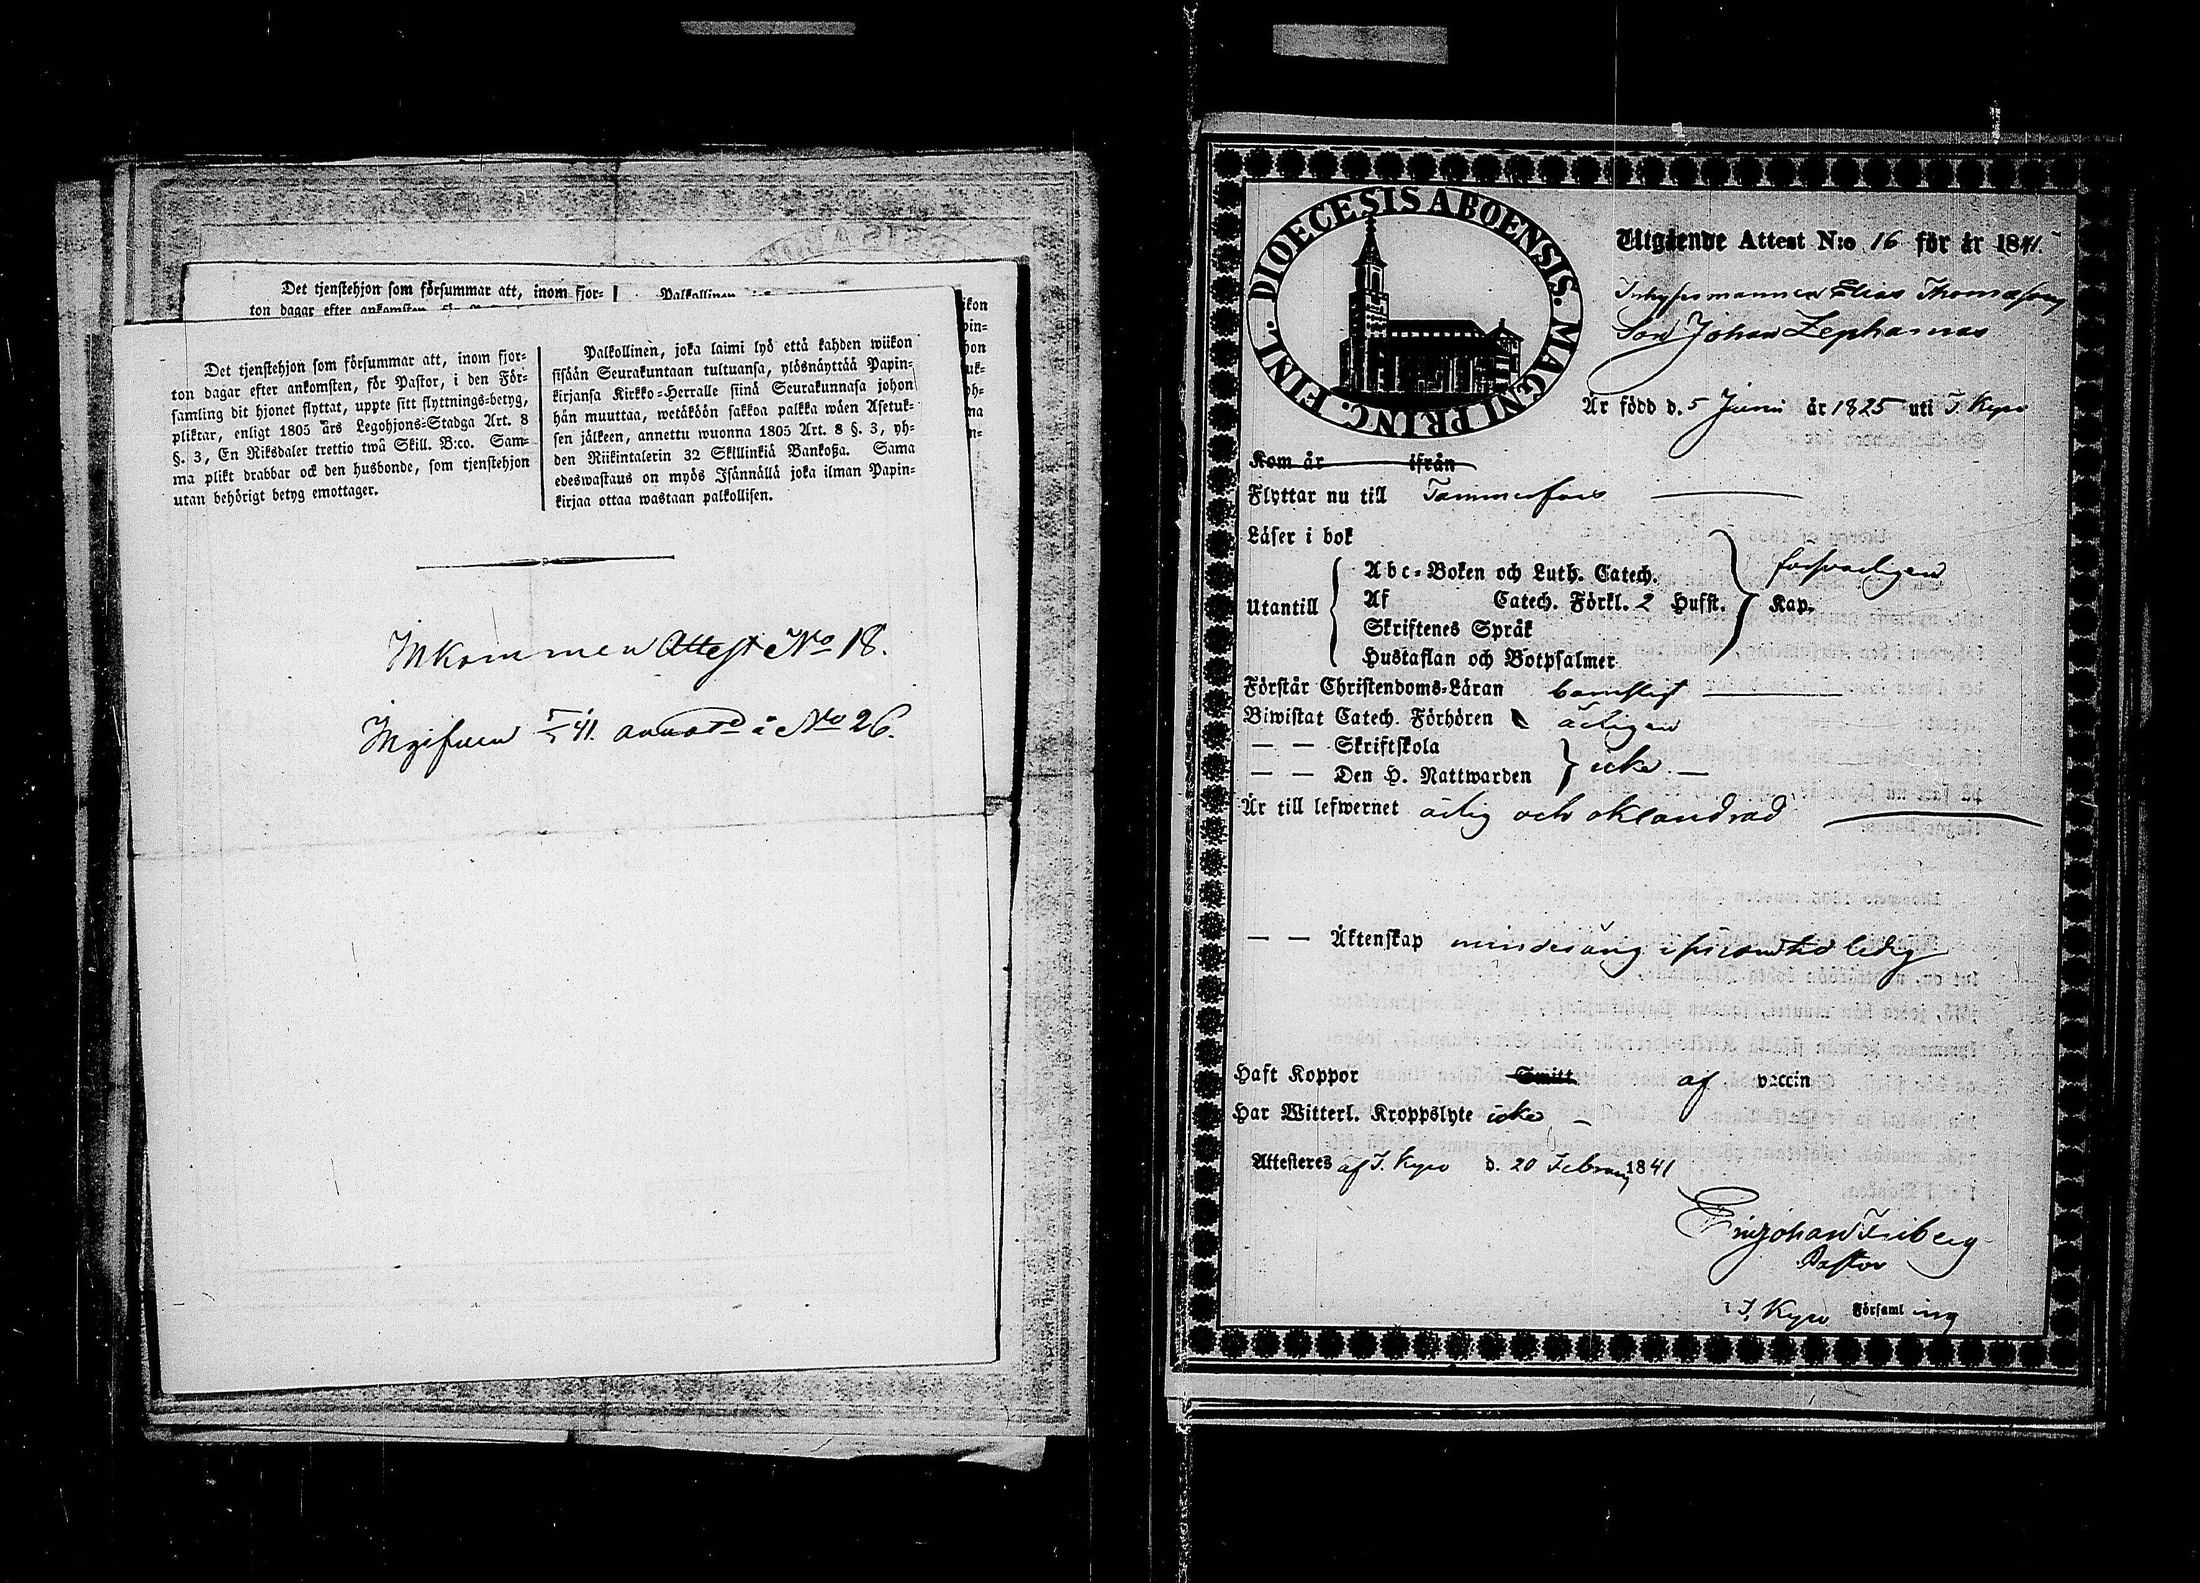 Det tjenstehjon som försummar att, inom fjor-
ton dagar efter ankomsten
Palkollinen
Det tjenstehjon som försummar att, inom fjor-
ton dagar efter ankomsten, för Pastor, i den För-
samling dit hjonet flyttat, uppte sitt flyttnings-betyg,
pliktar, enligt 1805 års Legohjons-Stadga Art. 8
§. 3, En Riksdaler trettio twå Skill. B:co. Sam-
ma plikt drabbar ock den husbonde, som tjenstehjon
utan behörigt betyg emottager.
Palkollinen, joka laimi lyö että kahden wiikon
sisään Seurakuntaan tultuansa, ylösnäyttää Papin-
kirjansa Kirkko-Herralle siinä Seurakunnasa johon
hän muuttaa, wetäköön sakkoa palkka wäen Asetuk-
sen jälkeen, annettu wuonna 1805 Art. 8 §. 3, yh-
den Riikintalerin 32 Skillinkiä Bankoßa. Sama
edeswastaus on myös Isännällä joka ilman Papin-
kirjaa ottaa wastaan palkollisen.
Inkommen Attest No 18.
Ingifven 5/5 41. annot. i No 26.
DIOECESIS ABOENSIS. MAGNI PRINC. FINL.
Utgående Attest N:o 16 för år 1841.
Elias Thomasson
Son Johan Zepharias
Är född d. 5 Junii år 1825 uti T. Kyro
Kom år ifrån
Flyttar nu till Tammerfors
Läser i bok försvarligen
Utantill
Abc-Boken och Luth. Catech.
Af Catech. Förkl. 2 Hufst. Kap.
Skriftenes Språk
Hustaflan och Botpsalmer
Förstår Christendoms-Läran barnsligt
Biwistat Catech. Förhören årligen
— — Skriftskola
— — Den H. Nattwarden icke
Är till lefwernet ärlig och oklandrad
— — Äktenskap minderårig i hvarom tid ledig
Haft Koppor Smitt af vaccin
Har Witterl. Kroppslyte icke
Attesteras af T. Kyro d. 20 Februarii 1841
Johan Friberg
Pastor
i T. Kyro Församling